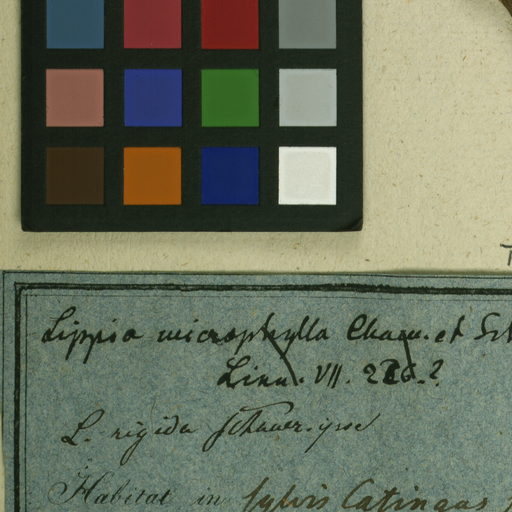 Lippia microphylla Cham. et
Linn. VII. 226.?
L. rigida Schauer. ipse
Habitat in sylvis Catingas